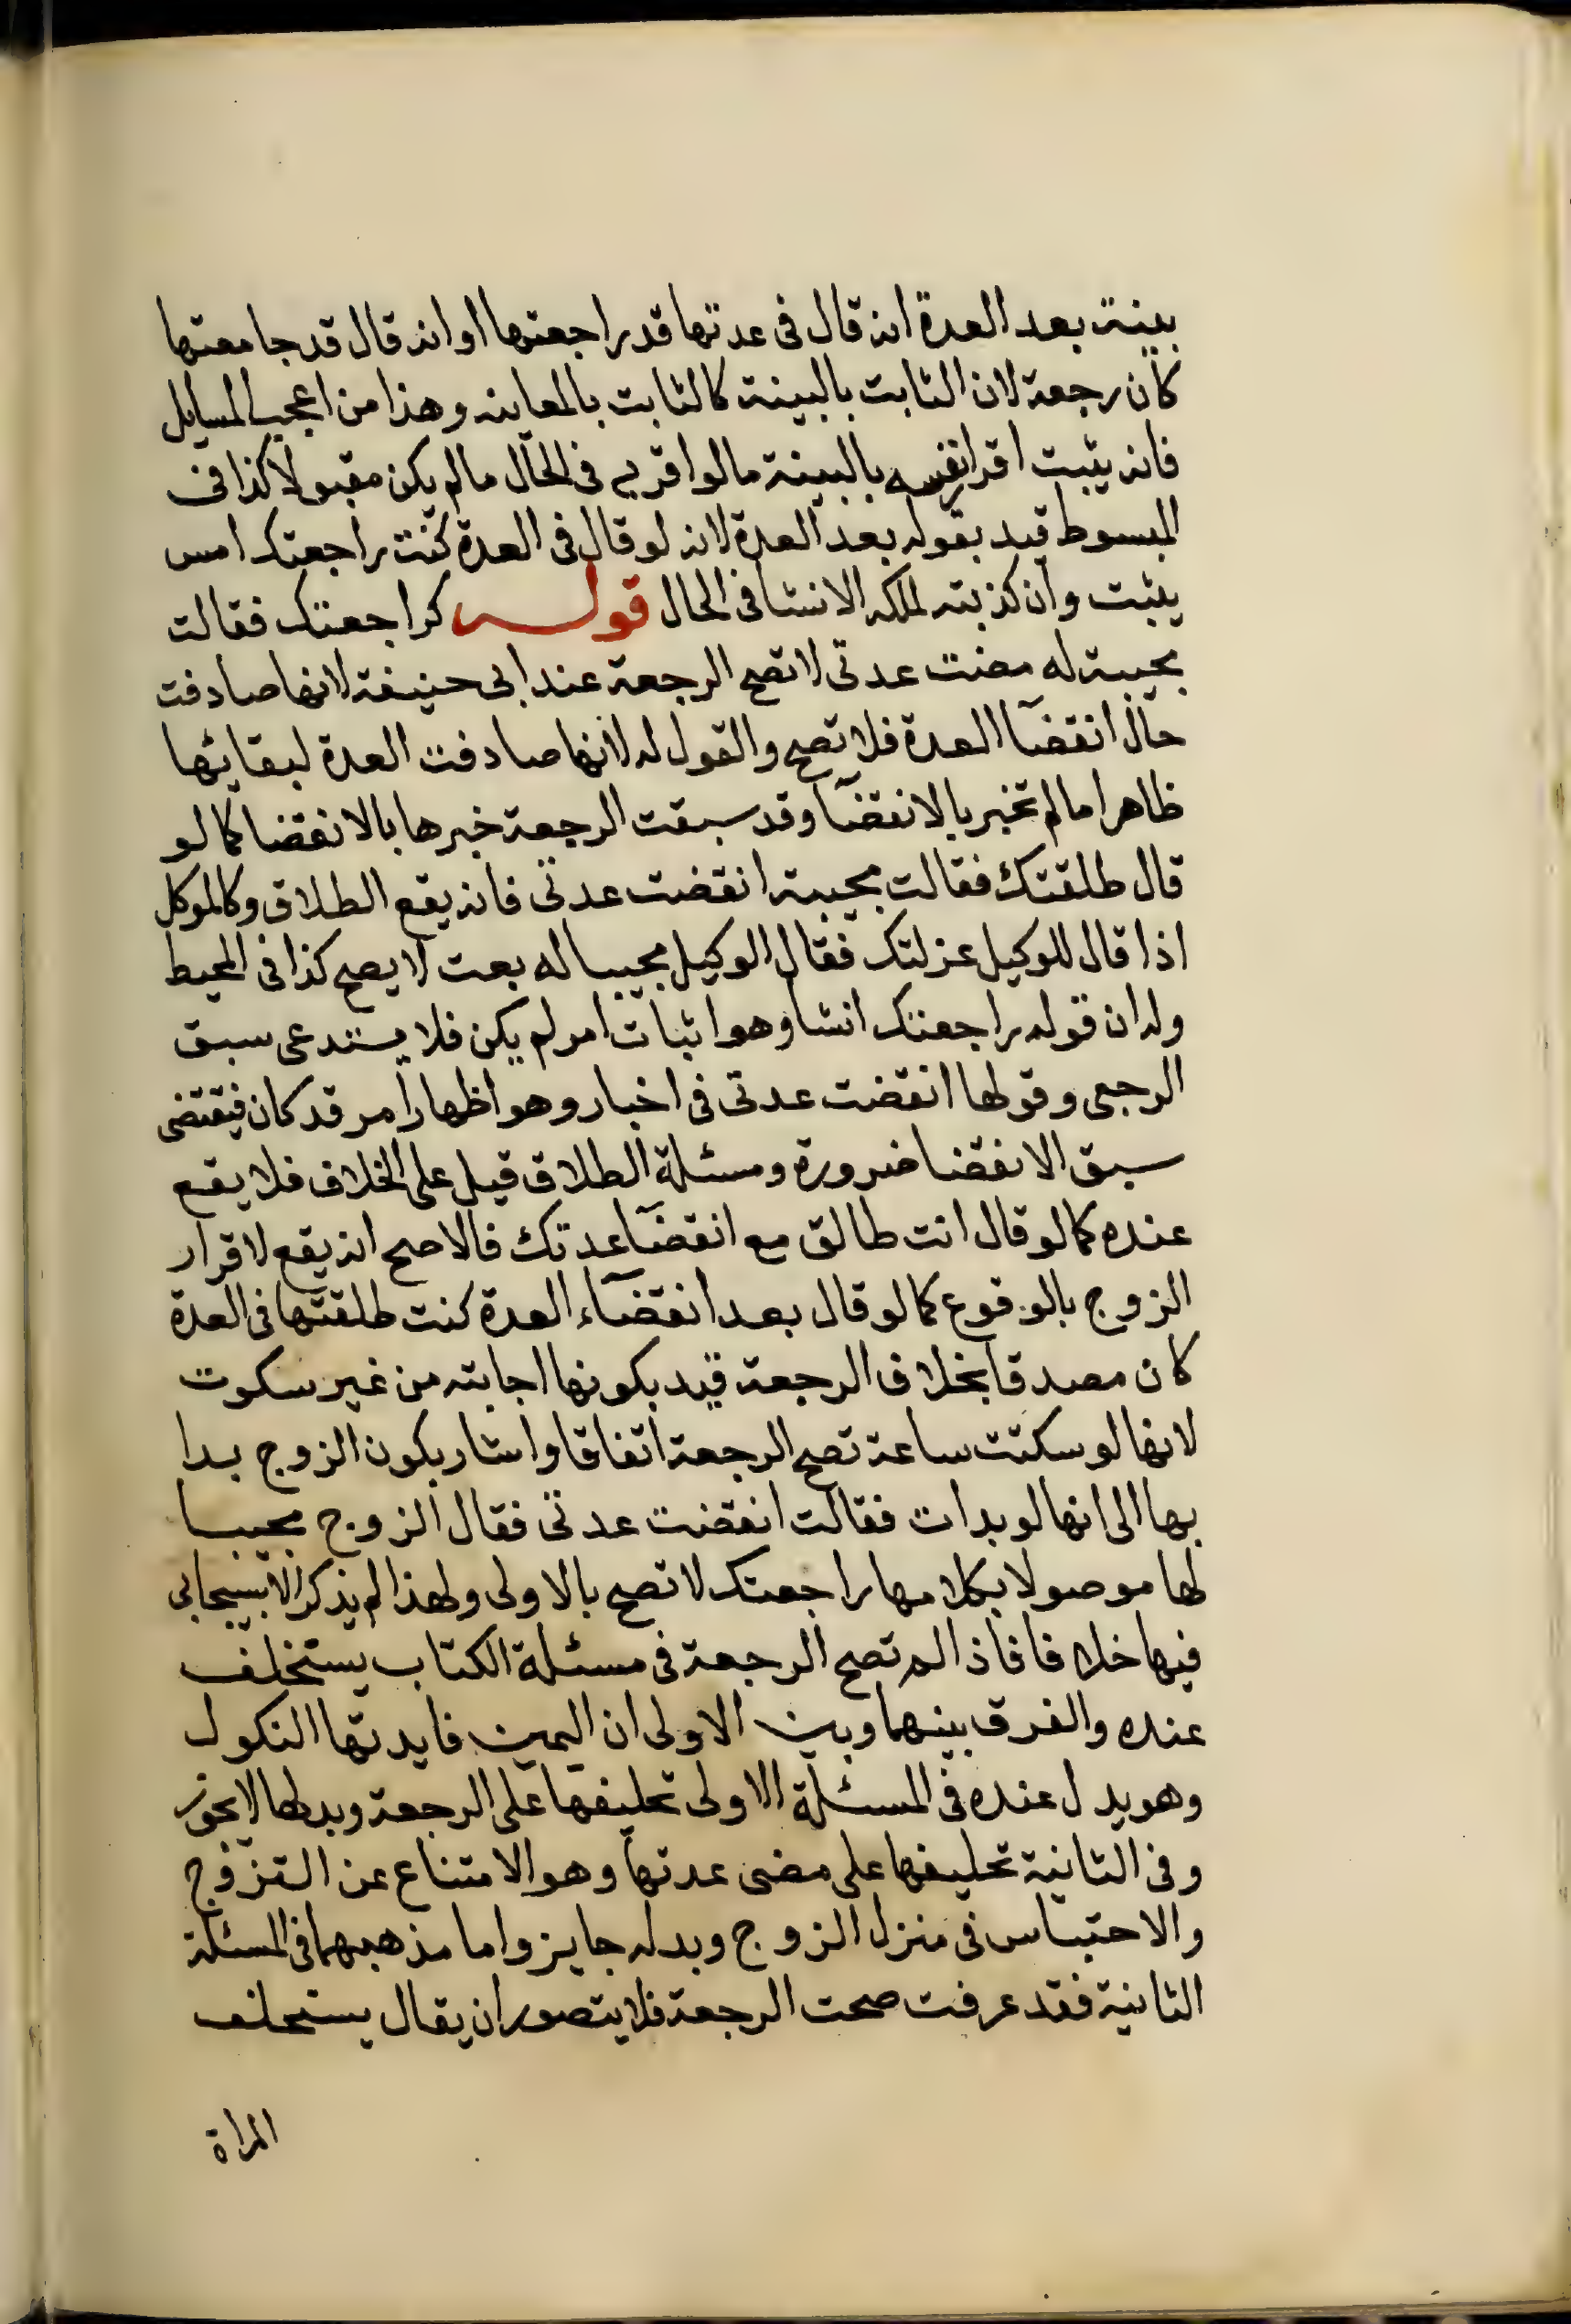 بينة بعد العدة انه قال فى عدتها قد راجعتها او انه قال قد جامعتها
كان رجعة لان الثابت بالبينة كالثابت بالمعاينه وهذا من اعجب المسايل
فانه يثبت اقرار نفسه بالبينة مالو اقر به فى الحال مالم يكن مقبولا كذا فى
المبسوط قيد بقوله بعد العدة لانه لو قال فى العدة كنت راجعتك امس
يثبت وان كذبته لملكه الانشا فى الحال قوله كراجعتك فقالت
مجيبة له مضت عدتى لا تصح الرجعة عند ابى حنيفة لانها صادفت
حال انقضآ العدة فلا تصح والقول له لانها صادفت العدة لبقائها
ظاهرا مالم تخبر بالانقضآ وقد سبقت الرجعة خبرها بالانقضا كما لو
قال طلقتك فقالت مجيبة انقضت عدتى فانه يقع الطلاق وكالموكل
اذا قال للوكيل عزلتك فقال الوكيل مجيبا له بعت لا يصح كذا فى المحيط
وله ان قوله راجعتك انشا وهو اثبات امر لم يكن فلا يستدعى سبق
الرجعى وقولها انقضت عدتى فى اخبار وهو اظهار امر قد كان فيقتضى
سبق الانقضا ضرورة ومسئلة الطلاق قيل على الخلاف فلا يقع
عنده كما لو قال انت طالق مع انقضآ عدتك فالاصح انه يقع لاقرار
الزوج بالوقوع كما لو قال بعد انقضآء العدة كنت طلقتها فى العدة
كان مصدقا بخلاف الرجعة قيد بكونها اجابته من غير سكوت
لانها لو سكتت ساعة تصح الرجعة اتفاقا واشار بكون الزوج بدا
بها الى انها لو بدات فقالت انقضت عدتى فقال الزوج مجيبا
لها موصولا بكلامها راجعتك لا تصح بالاولى ولهذا لم يذكر الاسبيجابى
فيها خلافا فاذا لم تصح الرجعة فى مسئلة الكتاب يستحلف
عنده والفرق بينهما وبين الاولى ان اليمين فايدتها النكول
وهو بدل عنده فى المسئلة الاولى تحليفها على الرجعة وبدلها لا يجوز
وفى الثانية تحليفها على مضى عدتها وهو الامتناع عن التزوج
والاحتباس فى منزل الزوج وبدله جايز واما مذهبهما فى المسئلة
الثانية فقد عرفت صحت الرجعة فلا يتصور ان يقال يستحلف
المراة